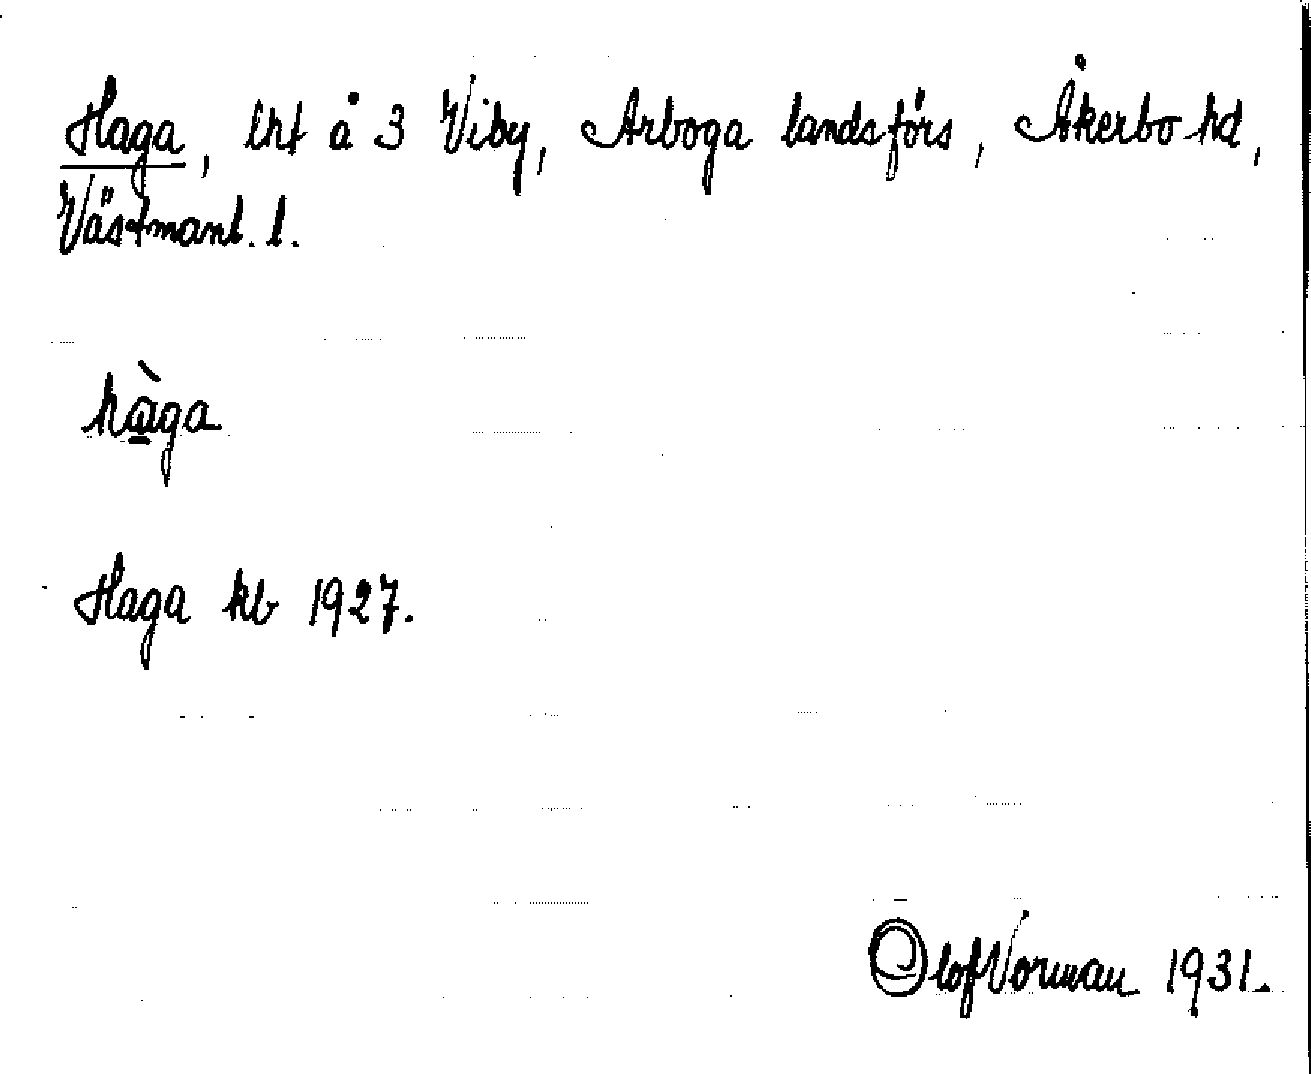 Haga, lht å 3 Viby, Arboga landsförs, Åkerbo hd,
Västmanl. l.
hàga
Haga kb 1927.
Olof Vorman 1931.